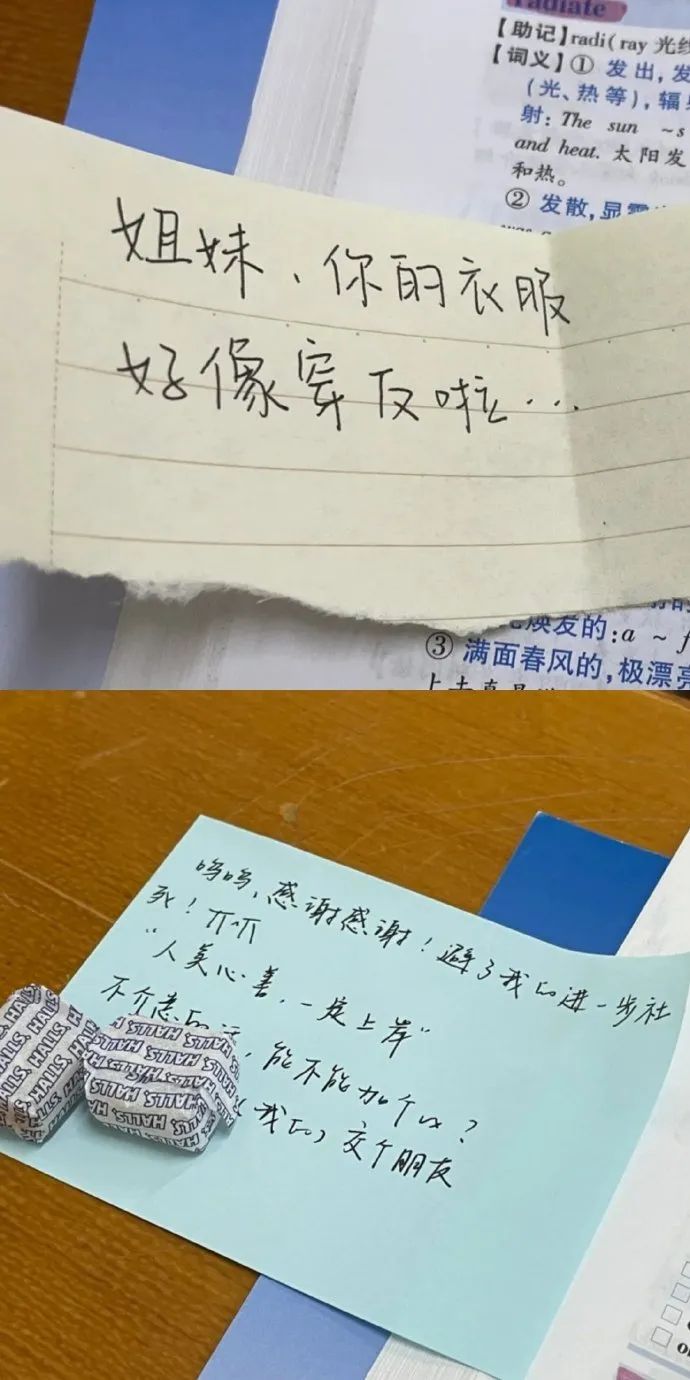 radiate
【助记】radi(ray 光线
【词义】① 发出，发
(光、热等)，辐
射：The sun ~s
and heat. 太阳发
和热。
② 发散，显露
姐妹、你的衣服
好像穿反啦…
焕发的：a ~ f
③ 满面春风的，极漂亮
呜呜、感谢感谢！避了我的进一步社
死！ㄫ^ㄫ
"人美心善，一定上岸"
不介意的话，能不能加个vx？
(我的) 交个朋友
HALLS HALLS HALLS
HALLS HALLS HALLS